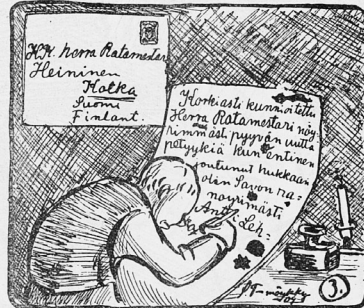 K.H. herra Ratamestari
Heininen
Kotka
Suomi
Finlant.
Korkiasti kunnioitettu
Herra Ratamestari nöy-
rimmäst pyyvän uutta
petyykiä kun entinen
joutunut hukkaan
olin Savon ra-
noyrimästi
Antt Leh-
3.